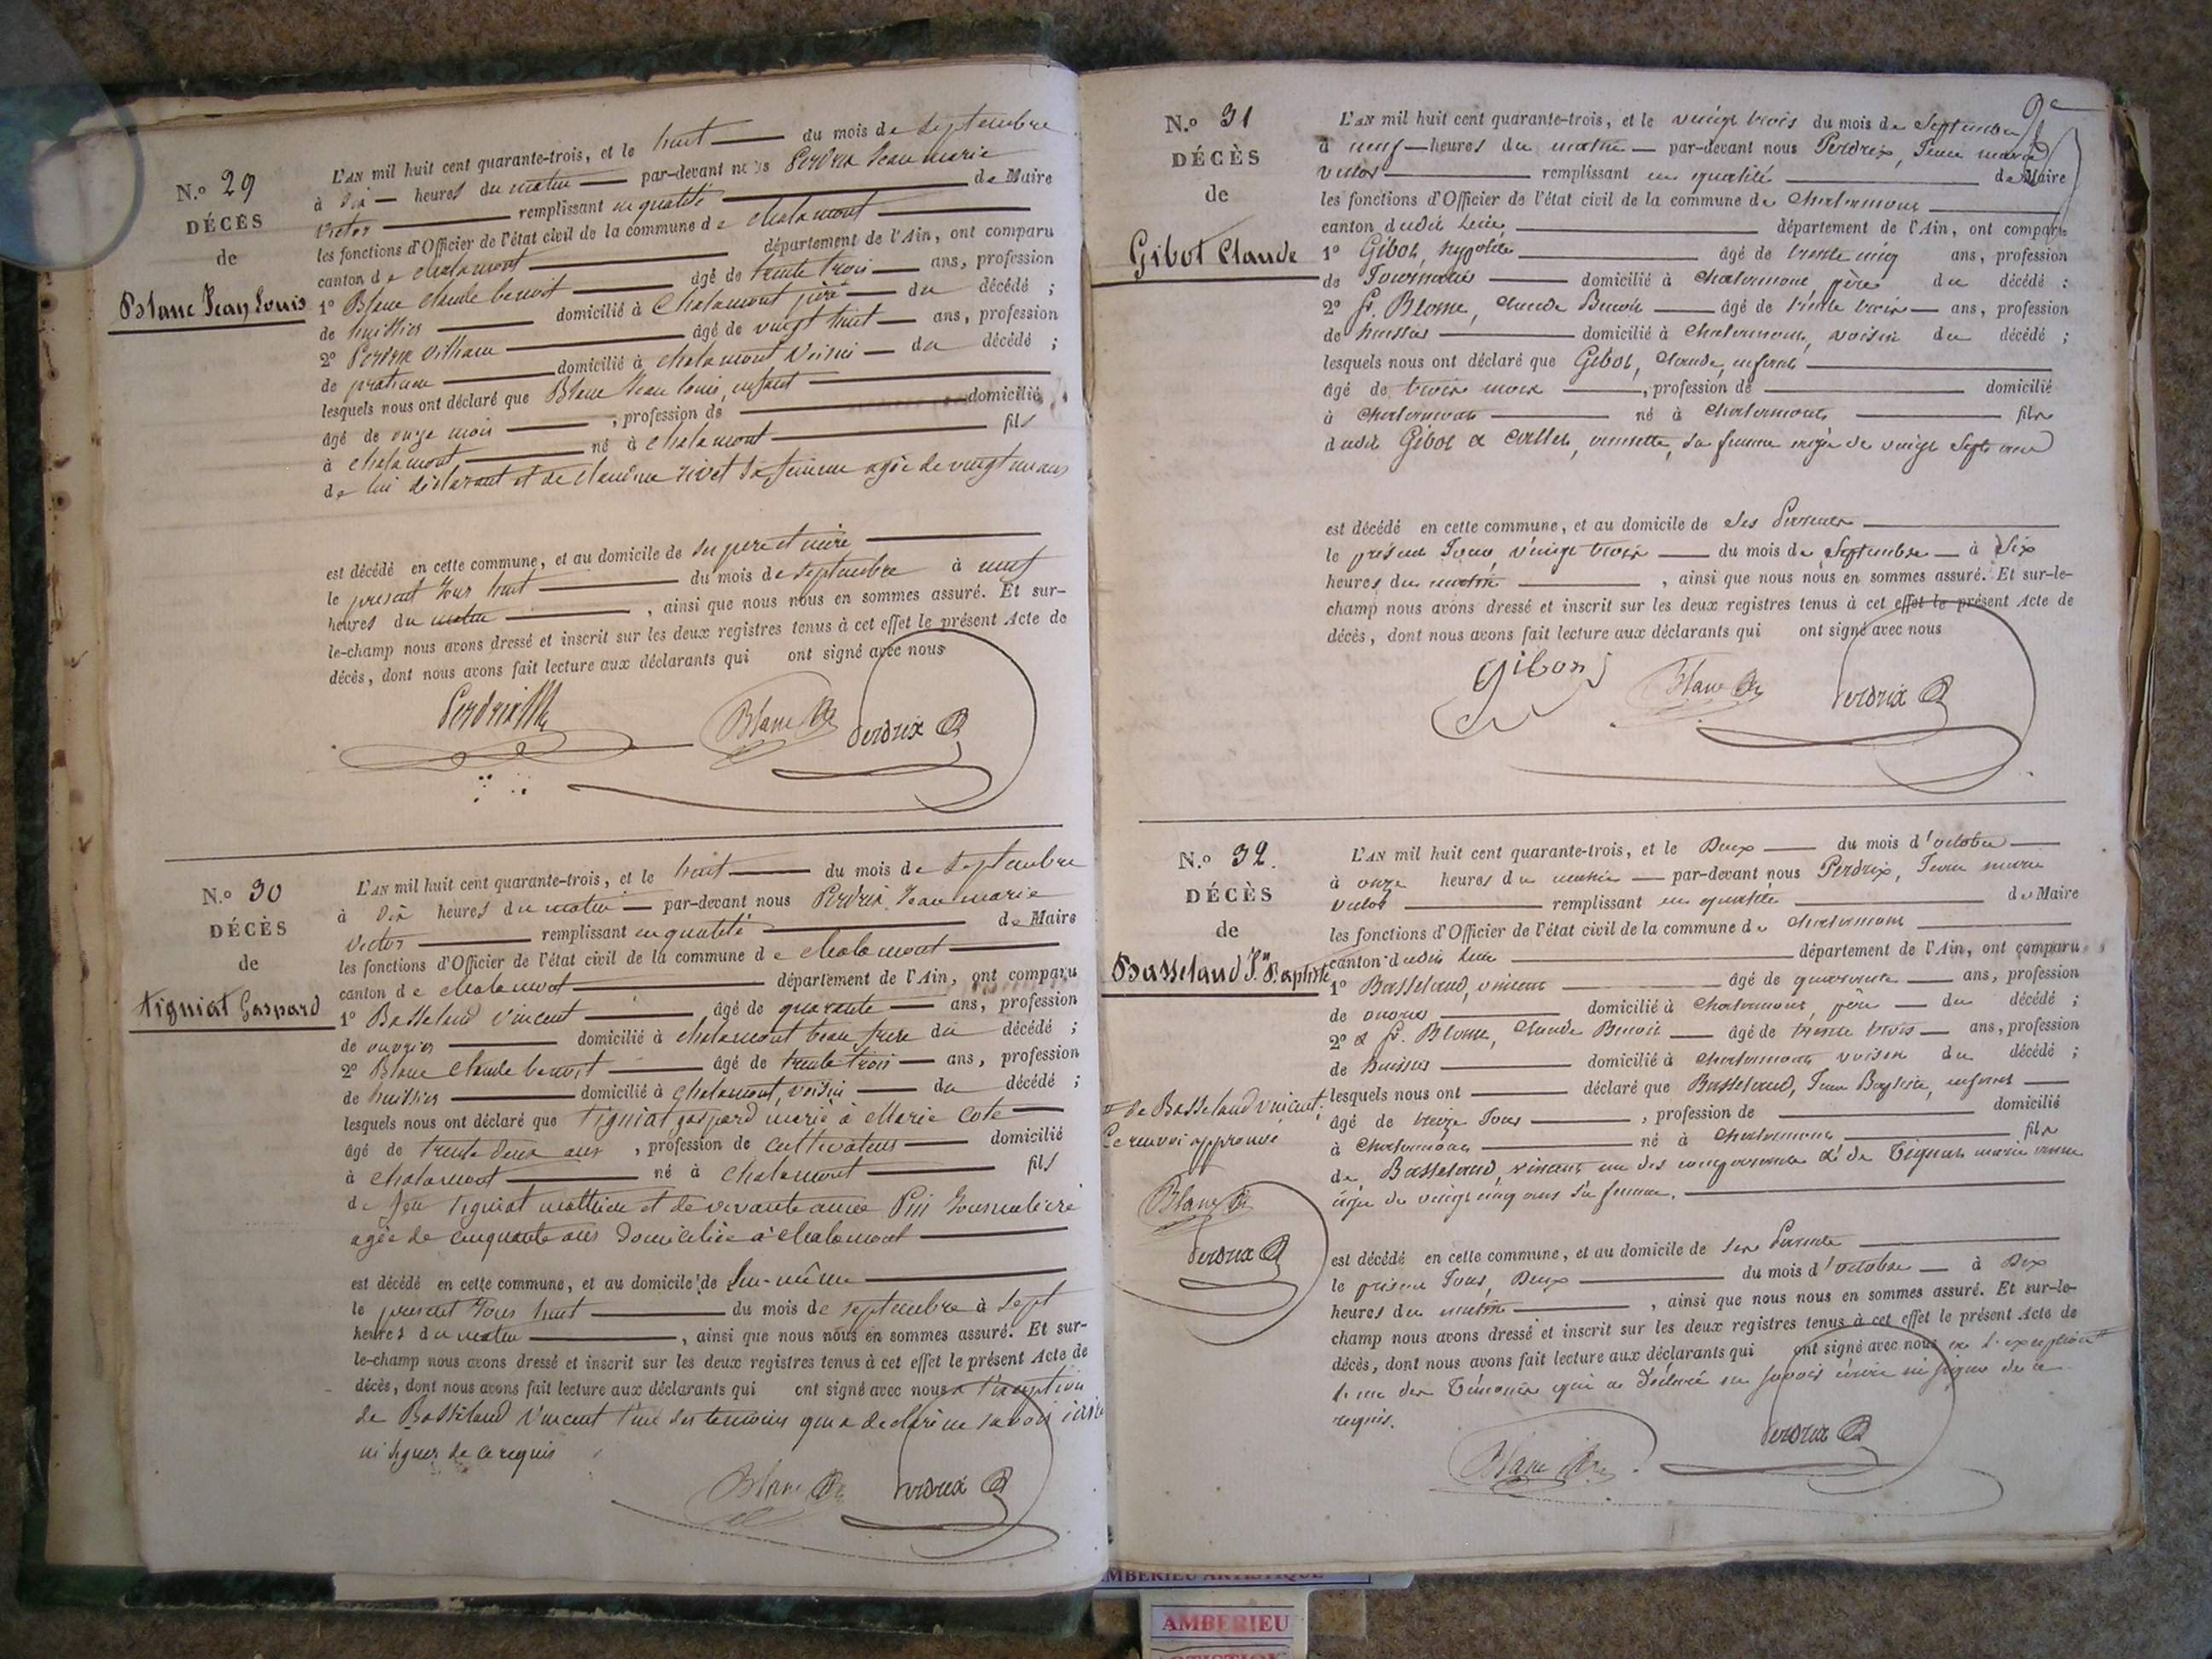 N.o 29
DÉCÈS
de
Blanc Jean Louis
L'AN mil huit cent quarante-trois, et le huit du mois de septembre
à dix heures du matin par-devant nous Perdrix Jean marie
victor remplissant en qualité de Maire
les fonctions d'Officier de l'état civil de la commune de chalamont
canton de chalamont département de l'Ain, ont comparu
1o Blanc claude benoit âgé de trente trois ans, profession
de huissier domicilié à Chalamont père du décédé ;
2o Perdrix âgé de vingt huit ans, profession
de praticien domicilié à chalamont voisin du décédé ;
lesquels nous ont déclaré que Blanc Jean Louis, enfant
âgé de onze mois , profession de domicilié
à chalamont né à chalamont fils
de lui déclarant et de claudine rivet sa femme agée de vingt un ans
est décédé en cette commune, et au domicile de ses pere et mère
le present jour huit du mois de septembre à neuf
heures du matin , ainsi que nous nous en sommes assuré. Et sur-
le-champ nous avons dressé et inscrit sur les deux registres tenus à cet effet le présent Acte de
décès, dont nous avons fait lecture aux déclarants qui ont signé avec nous
Perdrix Blanc Perdrix
N.o 30
DÉCÈS
de
Tigniat Gaspard
L'AN mil huit cent quarante-trois, et le huit du mois de septembre
à dix heures du matin par-devant nous Perdrix Jean marie
victor remplissant en qualité de Maire
les fonctions d'Officier de l'état civil de la commune de chalamont
canton de chalamont département de l'Ain, ont comparu
1o Basseland Vincent âgé de quarante ans, profession
de ouvrier domicilié à chalamont beau frere du décédé ;
2o Blanc claude benoit âgé de trente trois ans, profession
de huissier domicilié à chalamont, voisin du décédé ;
lesquels nous ont déclaré que Tigniat gaspard marié à Marie Cote
âgé de trente deux ans , profession de cultivateur domicilié
à chalamont né à chalamont fils
de feu Tigniat mathieu et de vivante anne Pin Journalière
agée de cinquante ans domiciliée à chalamont
est décédé en cette commune, et au domicile de lui-même
le present jour huit du mois de septembre à sept
heures du matin , ainsi que nous nous en sommes assuré. Et sur-
le-champ nous avons dressé et inscrit sur les deux registres tenus à cet effet le présent Acte de
décès, dont nous avons fait lecture aux déclarants qui ont signé avec nous a l'exception
de Basseland Vincent l'un des temoins qui a declaré ne savoir
ni signer de ce requis
Blanc Perdrix
N.o 31
DÉCÈS
de
Gibot Claude
L'AN mil huit cent quarante-trois, et le vingt trois du mois de Septembre
à neuf heures du matin par-devant nous Perdrix, Jean marie
victor remplissant en qualité de Maire
les fonctions d'Officier de l'état civil de la commune de Chalamont
canton dudit lieu département de l'Ain, ont comparu
1o Gibot, hypolite âgé de trente cinq ans, profession
de domicilié à chalamont, père du décédé ;
2o Sr. Blanc, claude Benoit âgé de trente trois ans, profession
de huissier domicilié à chalamont, voisin du décédé ;
lesquels nous ont déclaré que Gibot, Claude, enfant
âgé de trois mois , profession de domicilié
à chalamont né à chalamont fils
dudit Gibot & sa femme agée de vingt sept ans
est décédé en cette commune, et au domicile de ses Parents
le présent Jour vingt trois du mois de Septembre à Six
heures du matin , ainsi que nous nous en sommes assuré. Et sur-le-
champ nous avons dressé et inscrit sur les deux registres tenus à cet effet le présent Acte de
décès, dont nous avons fait lecture aux déclarants qui ont signé avec nous
Gibon Blanc Perdrix
N.o 32.
DÉCÈS
de
Basseland Jn Baptiste
L'AN mil huit cent quarante-trois, et le Deux du mois d'octobre
à onze heures du matin par-devant nous Perdrix, Jean marie
victor remplissant en qualité de Maire
les fonctions d'Officier de l'état civil de la commune de chalamont
canton dudit lieu département de l'Ain, ont comparu
1o Basseland, vincent âgé de quarante ans, profession
de domicilié à chalamont, père du décédé ;
2o & Sr. Blanc, Claude Benoit âgé de trente trois ans, profession
de huissier domicilié à chalamont voisin du décédé ;
lesquels nous ont déclaré que Basseland, Jean Baptiste, enfant
âgé de treize Jours , profession de domicilié
à chalamont né à chalamont fils
de Basseland, vincent un des comparants & de Tigniat marie anne
agée de vingt cinq ans sa femme.
est décédé en cette commune, et au domicile de ses Parents
le présent Jour, Deux du mois d'octobre à Dix
heures du matin , ainsi que nous nous en sommes assuré. Et sur-le-
champ nous avons dressé et inscrit sur les deux registres tenus à cet effet le présent Acte de
décès, dont nous avons fait lecture aux déclarants qui ont signé avec nous a l'exception #
l'un des Témoins qui a déclaré ne savoir écrire ni signer de ce
requis.
Blanc Perdrix
# de Basseland vincent.
Ce renvoi approuvé
Blanc
Perdrix
AMBERIEU ARTISTIQUE
AMBERIEU
ARTISTIQUE